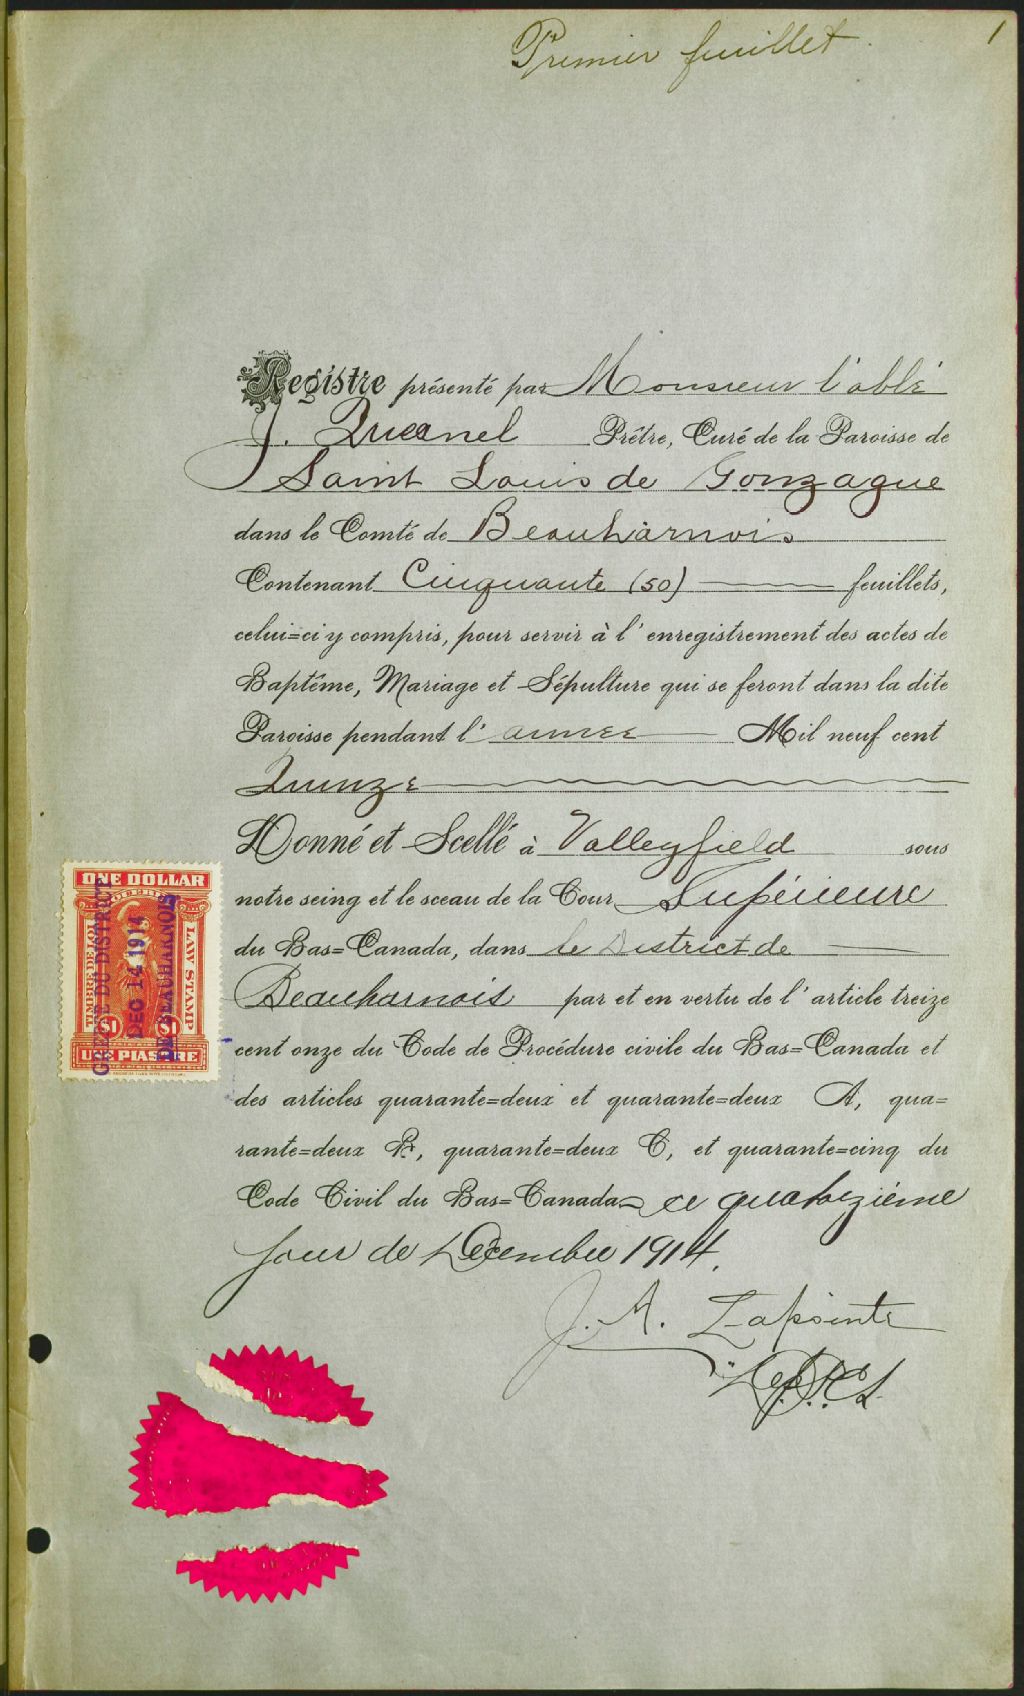 Premier feuillet
1
Registre présenté par Monsieur l'abbé
J. Quesnel Prêtre, Curé de la Paroisse de
Saint Louis de Gonzague
dans le Comté de Beauharnois
Contenant Cinquante (50) feuillets,
celui=ci y compris, pour servir à l'enregistrement des actes de
Baptême, Mariage et Sépulture qui se feront dans la dite
Paroisse pendant l'année Mil neuf cent
Quinze
Donné et Scellé à Valleyfield sous
notre seing et le sceau de la Cour Supérieure
du Bas=Canada, dans le District de
Beauharnois par et en vertu de l'article treize
cent onze du Code de Procédure civile du Bas=Canada et
des articles quarante=deux et quarante=deux A, qua=
rante=deux B, quarante=deux C, et quarante=cinq du
Code Civil du Bas=Canada ce quatorzième
jour de Décembre 1914.
J. A. Lapointe
Dep. P.C.S.
ONE DOLLAR
TIMBRE DE LOI
LAW STAMP
$1 $1
UNE PIASTRE
GREFFE DU DISTRICT
DEC 14 1914
DE BEAUHARNOIS